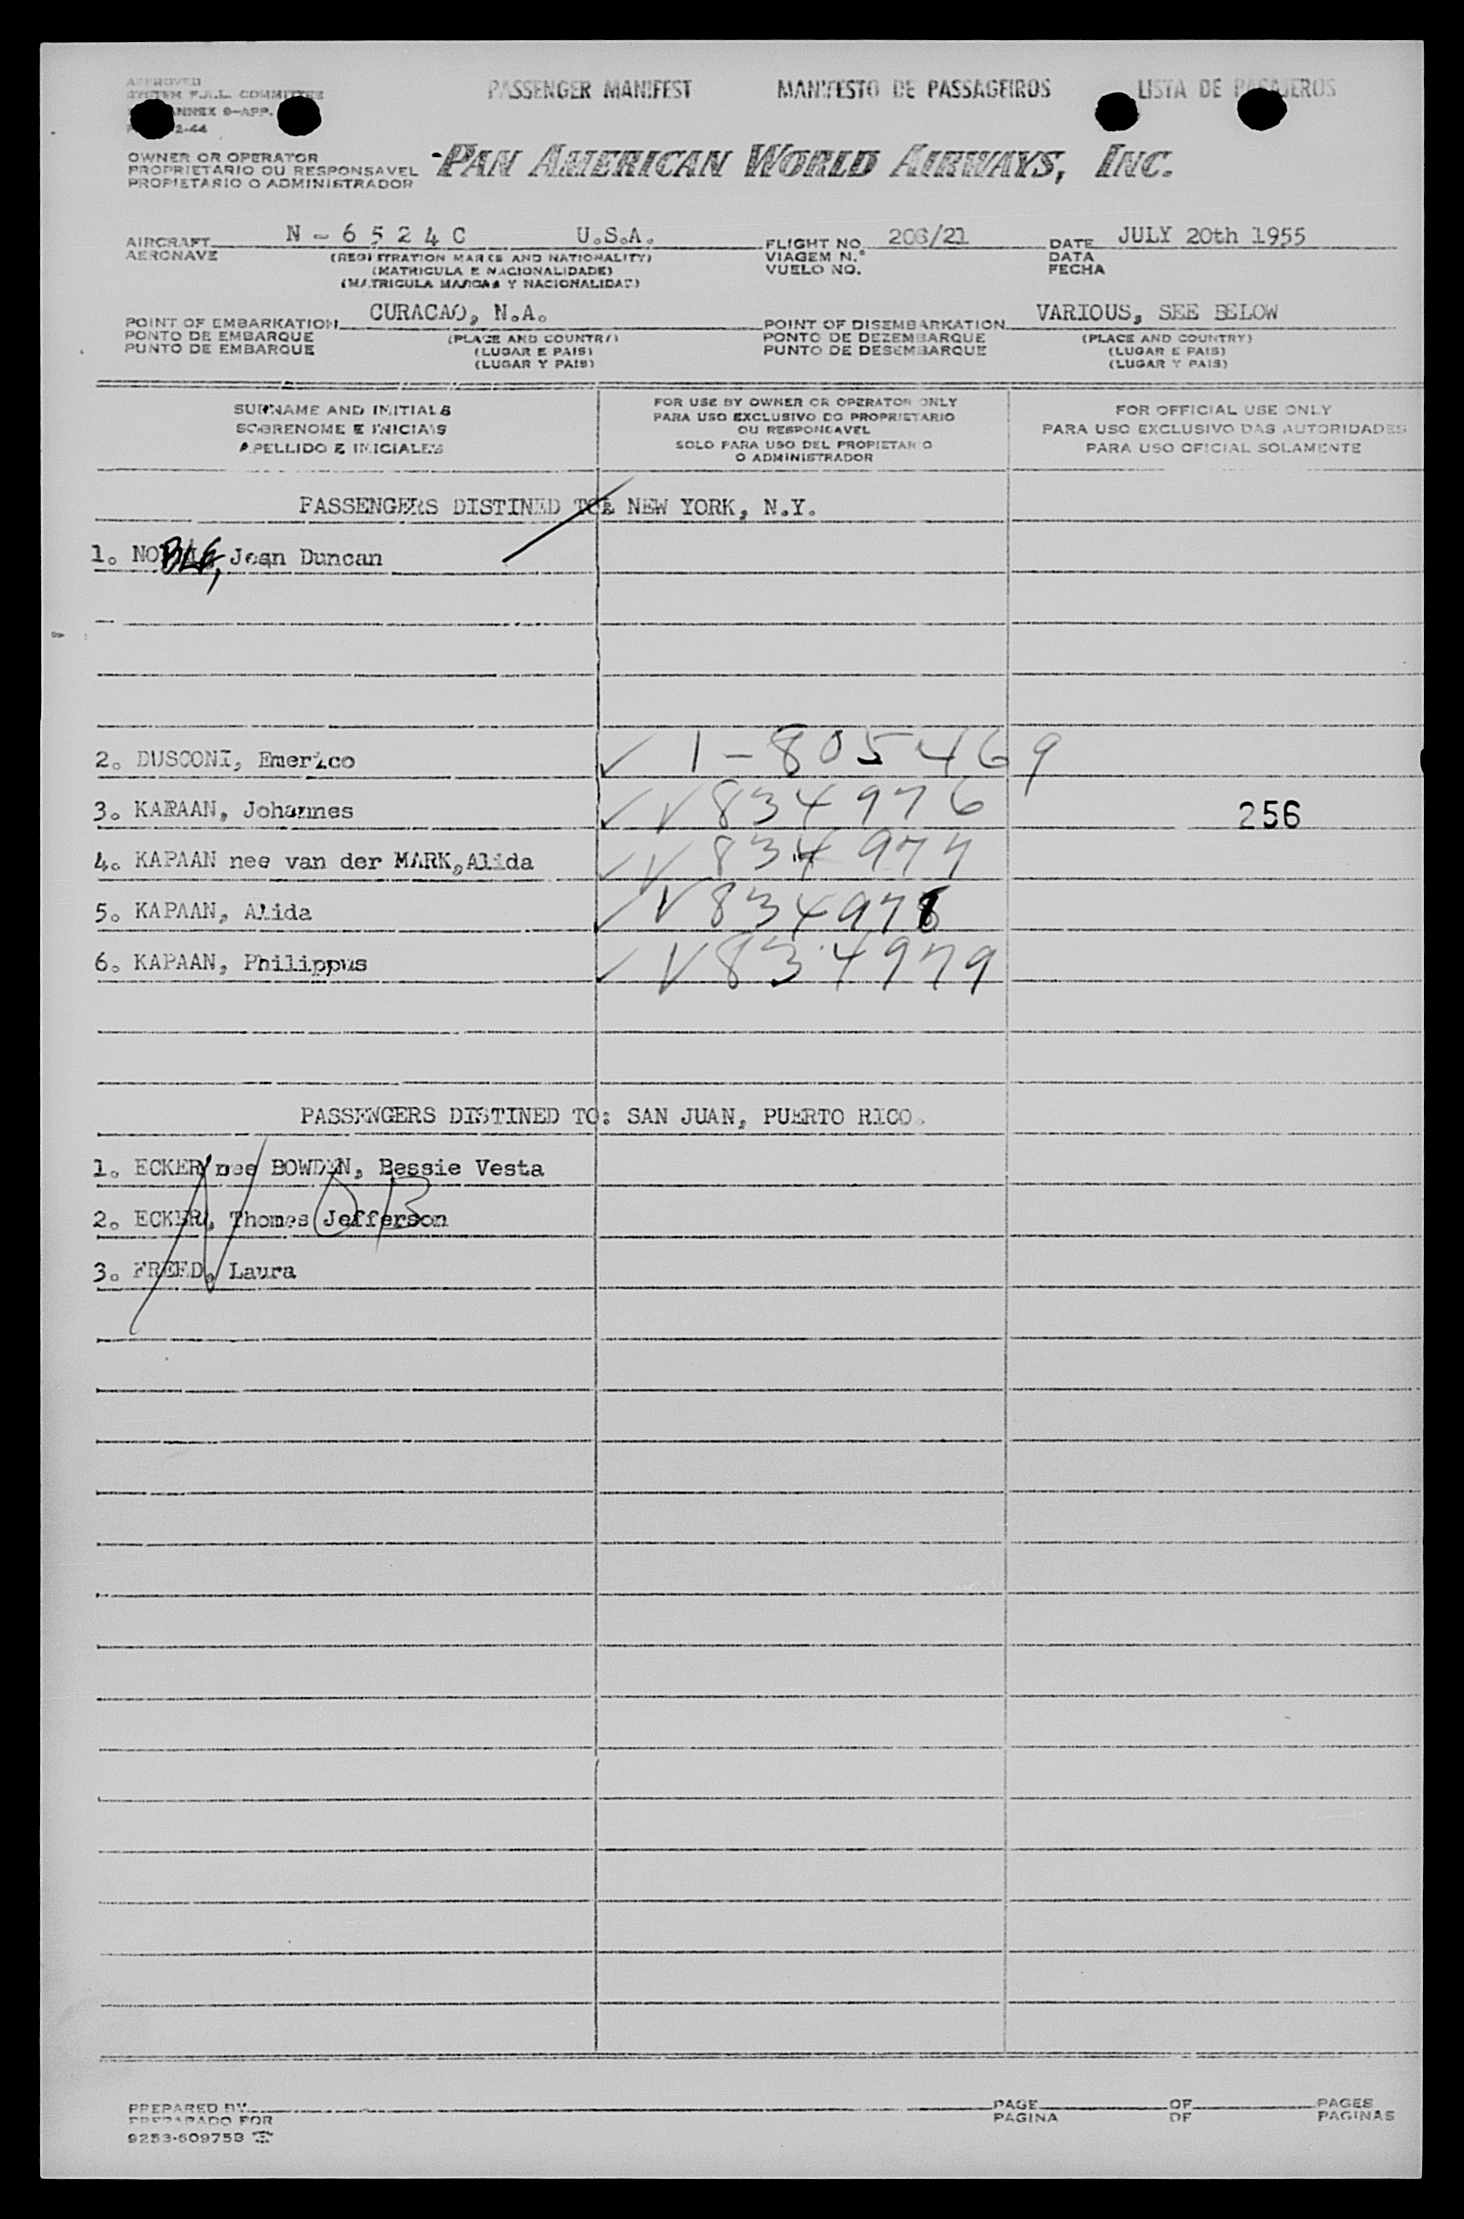 APPROVED
SYSTEM F.A.L. COMMITTEE
ANNEX 9-APP.
2-44
PASSENGER MANIFEST MANIFESTO DE PASSAGEIROS LISTA DE PASAJEROS
OWNER OR OPERATOR
PROPRIETARIO OU RESPONSAVEL
PROPIETARIO O ADMINISTRADOR
PAN AMERICAN WORLD AIRWAYS, INC.
AIRCRAFT N - 6 5 2 4 C U.S.A. FLIGHT NO. 206/21 DATE JULY 20th 1955
AERONAVE (REGISTRATION MARKS AND NATIONALITY) VIAGEM N.º DATA
(MATRICULA E NACIONALIDADE) VUELO NO. FECHA
(MATRICULA MARCAS Y NACIONALIDAD)
POINT OF EMBARKATION CURACAO, N.A. POINT OF DISEMBARKATION VARIOUS, SEE BELOW
PONTO DE EMBARQUE (PLACE AND COUNTRY) PONTO DE DEZEMBARQUE (PLACE AND COUNTRY)
PUNTO DE EMBARQUE (LUGAR E PAIS) PUNTO DE DESEMBARQUE (LUGAR E PAIS)
(LUGAR Y PAIS) (LUGAR Y PAIS)
SURNAME AND INITIALS
SOBRENOME E INICIAIS
APELLIDO E INICIALES
FOR USE BY OWNER OR OPERATOR ONLY
PARA USO EXCLUSIVO DO PROPRIETARIO
OU RESPONSAVEL
SOLO PARA USO DEL PROPIETARIO
O ADMINISTRADOR
FOR OFFICIAL USE ONLY
PARA USO EXCLUSIVO DAS AUTORIDADES
PARA USO OFICIAL SOLAMENTE
PASSENGERS DISTINED TO: NEW YORK, N.Y.
1. NOBLE, Jean Duncan
2. DUSCONI, Emerico ✓ 1-805469
3. KAPAAN, Johannes ✓ V834976 256
4. KAPAAN nee van der MARK, Alida ✓ V834977
5. KAPAAN, Alida ✓ V834978
6. KAPAAN, Philippus ✓ V834979
PASSENGERS DISTINED TO: SAN JUAN, PUERTO RICO.
1. ECKER nee BOWDEN, Bessie Vesta
2. ECKER, Thomas Jefferson
3. FREED, Laura
NOB
PREPARED BY PAGE OF PAGES
PREPARADO POR PAGINA DE PAGINAS
9253-609753